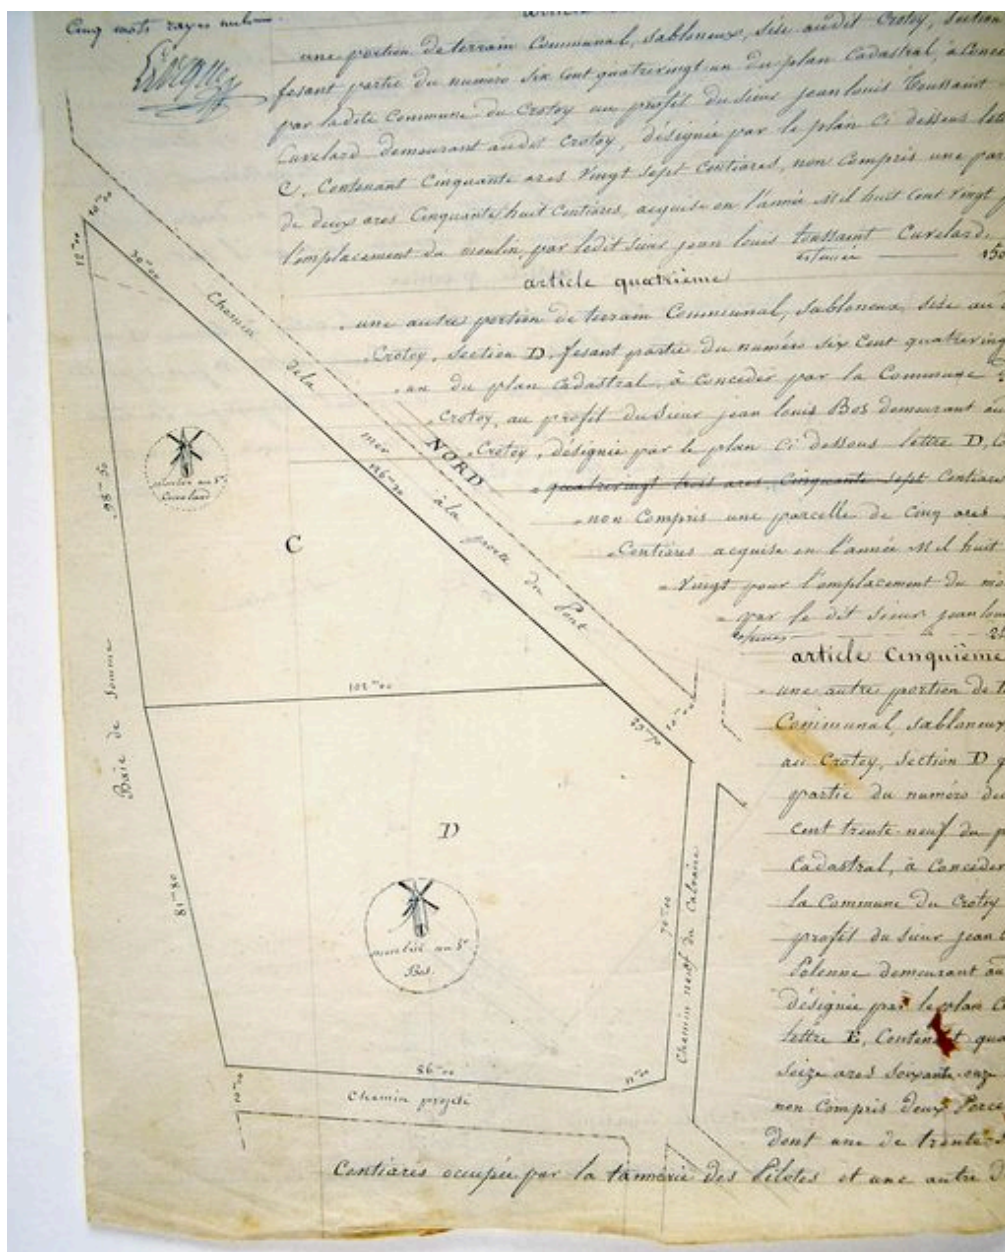 Cinq mots rayés nuls
une portion de terrain Communal, sabloneux, sise audit Crotoy, section
fesant partie du numéro six cent quatrevingt un du plan Cadastral, à Conce
par ladite Commune du Crotoy au profit du sieur jean louis Toussaint
Cuvelard demeurant audit Crotoy, désignée par le plan Ci dessous lett
C. Contenant Cinquante ares Vingt sept Centiares, non Compris une par
de deux ares Cinquante huit Centiares, acquise en l'année Mil huit Cent Vingt
l'emplacement du moulin, par ledit sieur jean louis toussaint Cuvelard.
estimée 150
article quatrième
une autre portion de terrain Communal, sabloneux, sise au
Crotoy, section D. fesant partie du numéro six Cent quatreving
un du plan Cadastral, à Concéder par la Commune
Crotoy, au profit du sieur jean louis Bos demeurant au
Crotoy, désignée par le plan Ci dessous lettre D, C
quatrevingt trois ares Cinquante sept Centiare
non Compris une parcelle de Cinq ares
Centiares acquise en l'année Mil huit
Vingt pour l'emplacement du mo
par le dit sieur jean lou
estimée
article Cinquième
une autre portion de t
Communal, sabloneux
au Crotoy, section D
partie du numéro de
cent trente neuf du p
Cadastral, à Concéder
la Commune du Crotoy
profit du sieur jean
Polenne demeurant au
désignée par le plan C
lettre E, Contenant qua
seize ares soixante onze
non Compris deux Parce
dont une de trente
Centiares occupée par la tannerie des Pilotes et une autre
10m 00
12m 00
30m 00
Chemin
de la
mer
à la porte du Pont
NORD
116m 20
98m 50
moulin au Sr
Cuvelard
C
Baie de Somme
102m 00
25m 70
10m 00
D
81m 80
moulin au Sr
Bos.
70m 00
Chemin neuf du Calvaire
86m 00
11m 20
Chemin projeté
10m 00